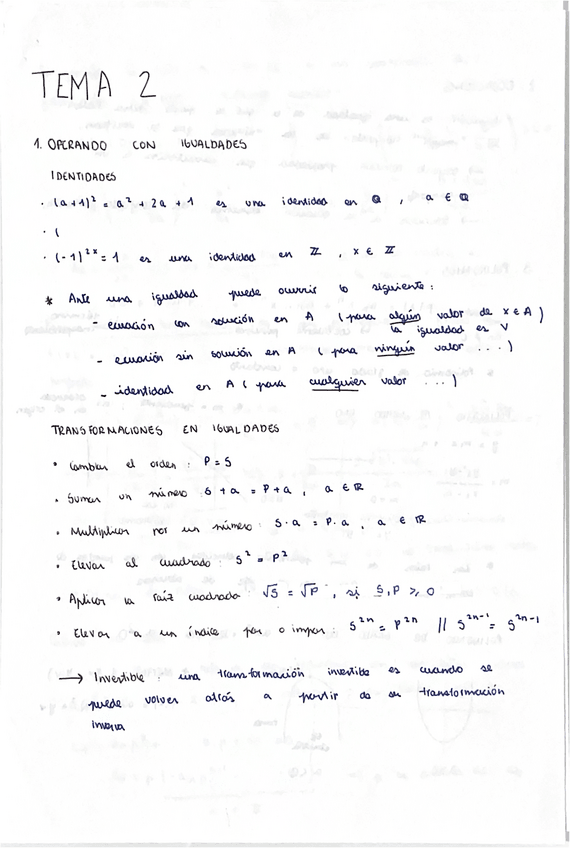 TEMA 2
1. OPERANDO CON IGUALDADES
IDENTIDADES
· (a+1)² = a² + 2a + 1 es una identidad en ℚ , a ∈ ℚ
· (
· (-1)²ˣ = 1 es una identidad en ℤ , x ∈ ℤ
* Ante una igualdad puede ocurrir lo siguiente:
- ecuación con solución en A ( para algún valor de x ∈ A )
la igualdad es V
- ecuación sin solución en A ( para ningún valor ... )
- identidad en A ( para cualquier valor ... )
TRANSFORMACIONES EN IGUALDADES
• Cambiar el orden : P = S
• Sumar un número S + a = P + a , a ∈ ℝ
• Multiplicar por un número : S · a = P · a , a ∈ ℝ
• Elevar al cuadrado : S² = P²
• Aplicar la raíz cuadrada : √S = √P , si S, P ≥ 0
• Elevar a un índice par o impar : S²ⁿ = P²ⁿ // S²ⁿ⁻¹ = S²ⁿ⁻¹
→ Invertible : una transformación invertible es cuando se
puede volver atrás a partir de su transformación
inversa